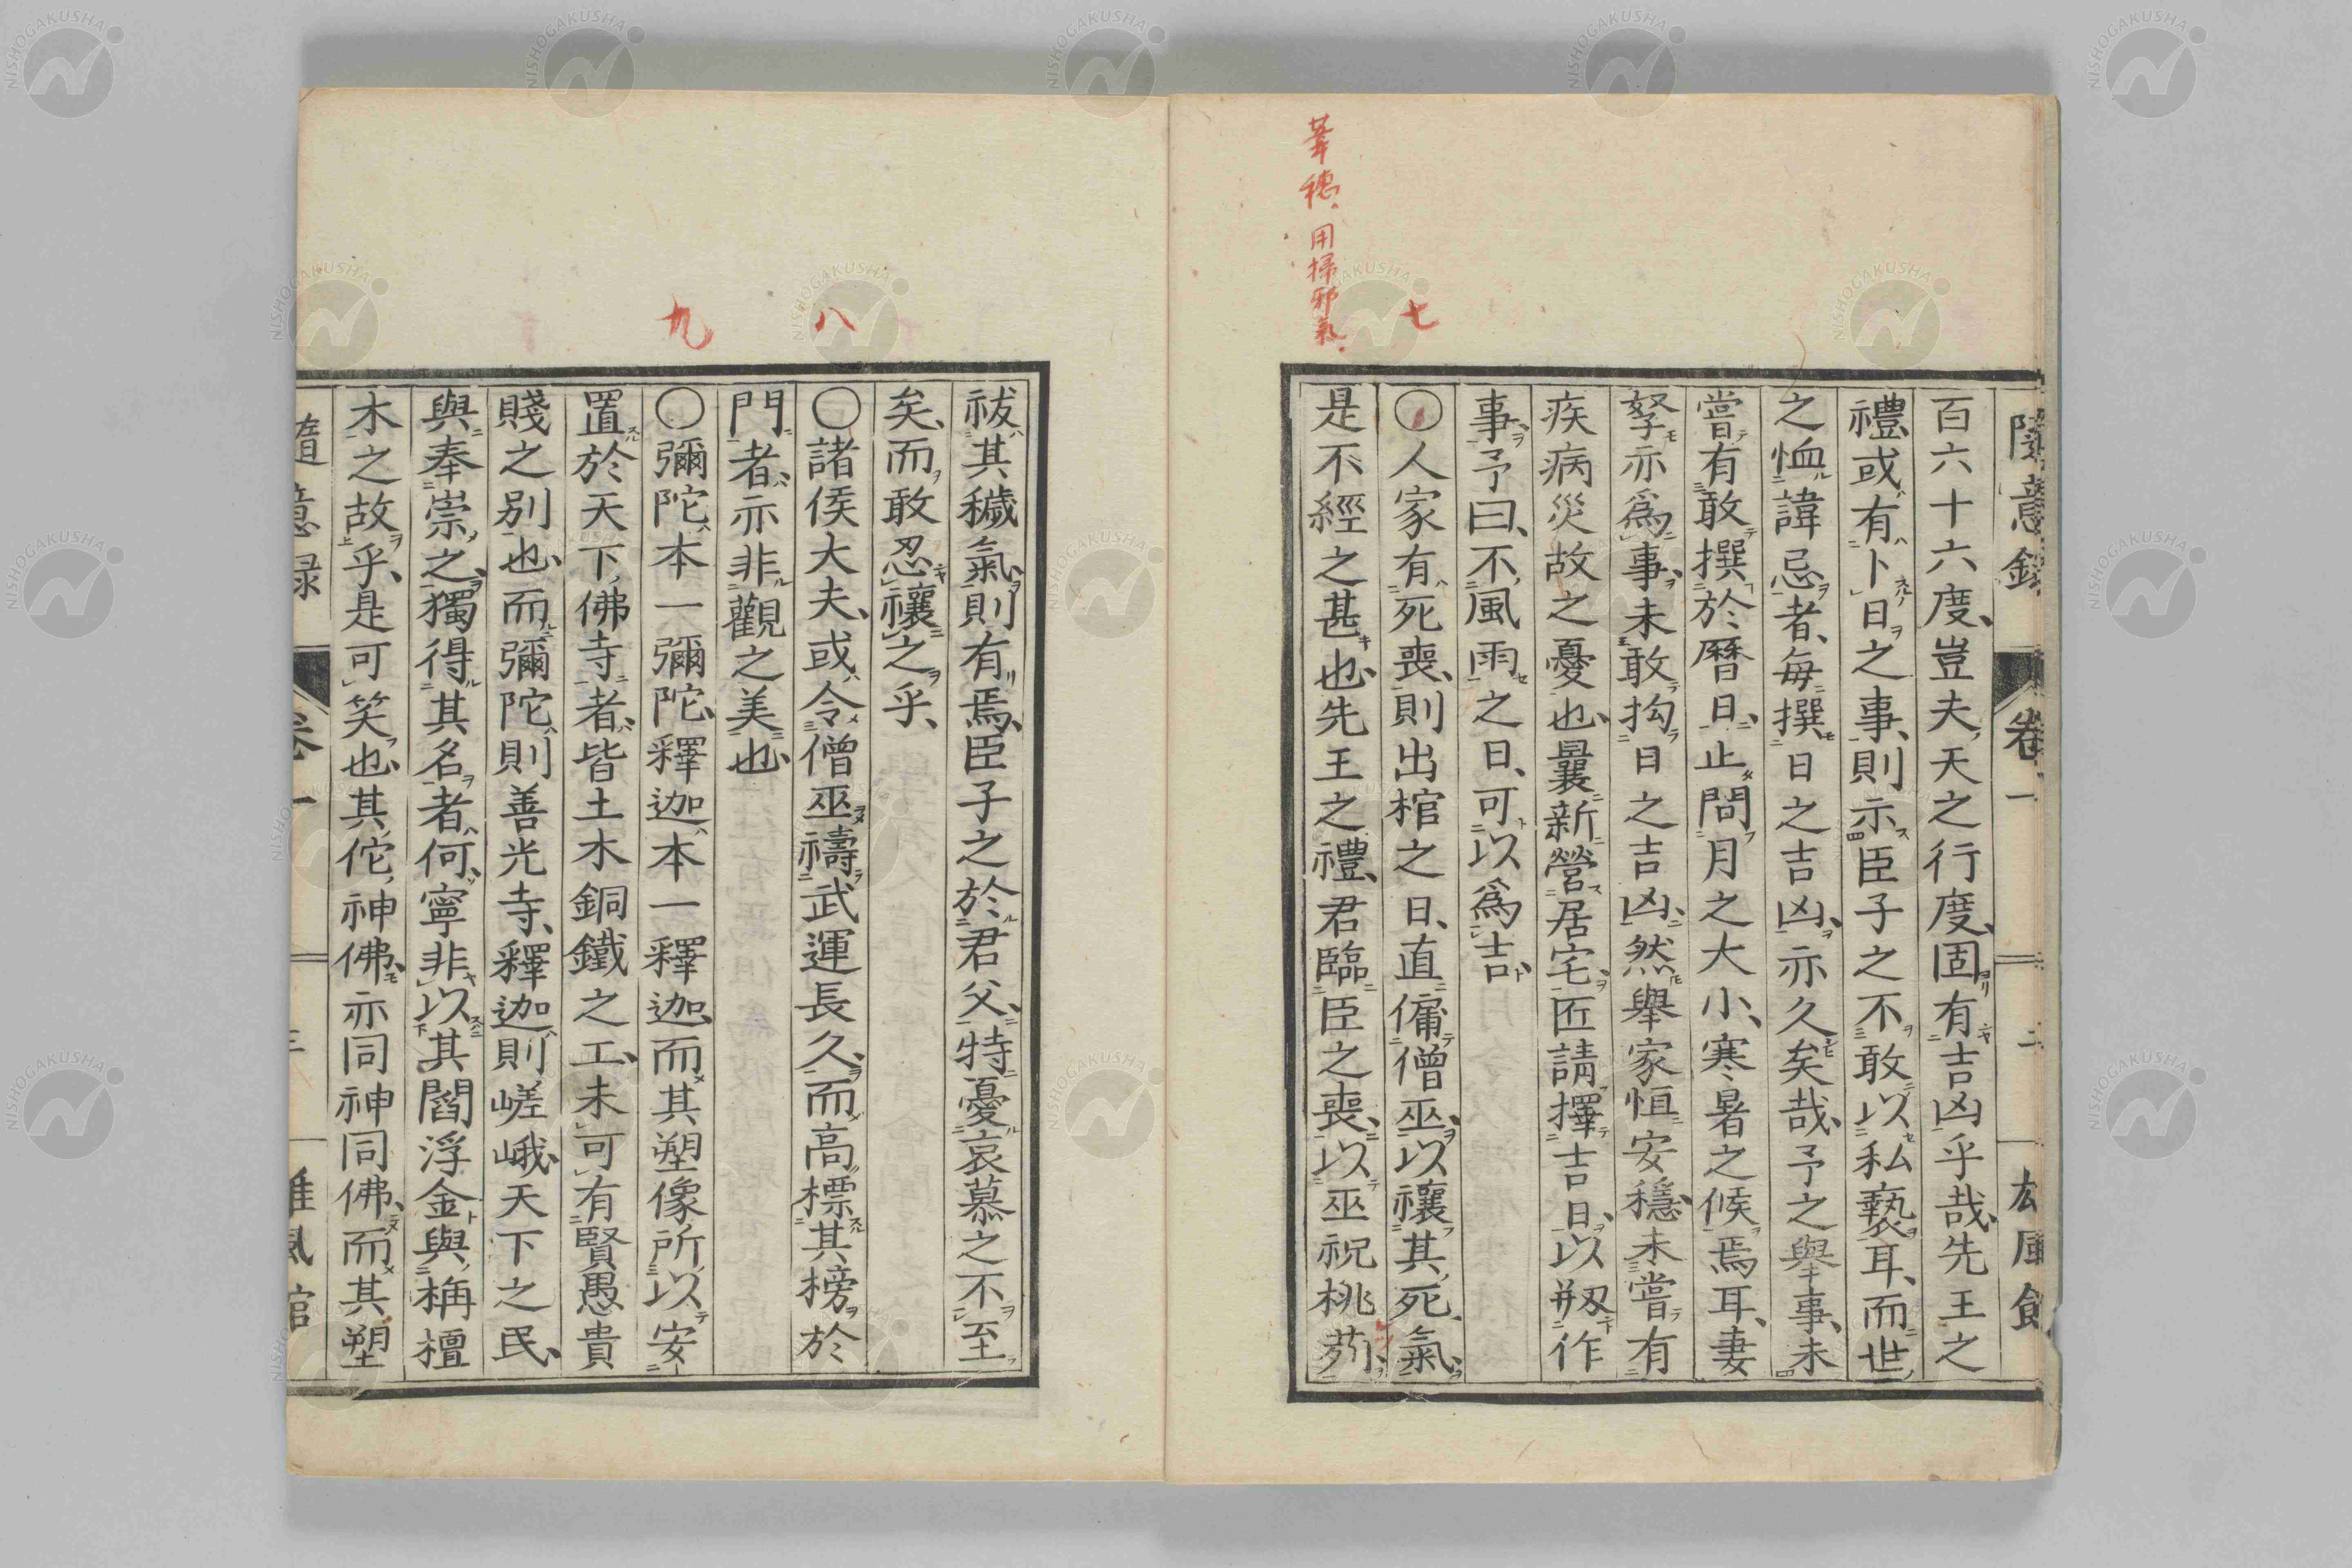 隨意録 卷一 二 雄風館
百六十六度、豈夫天之行度、固有吉凶乎哉、先王之
禮、或有卜日之事、則示臣子之不敢以私褻耳、而世
之恤諱忌者、毎撰日之吉凶、亦久矣哉、予之擧事、未
嘗有敢撰於曆日、止問月之大小、寒暑之候焉耳、妻
孥亦爲事、未敢拘日之吉凶、然擧家恒安穩、未嘗有
疾病災故之憂也、曩新營居宅、匠請擇吉日、以剏作
事、予曰、不風雨之日、可以爲吉、
七
〇人家有死喪、則出棺之日、直傭僧巫、以禳其死氣、
葦穗、用掃邪氣、
是不經之甚也、先王之禮、君臨臣之喪、以巫祝桃茢、
祓其穢氣、則有焉、臣子之於君父、特憂哀慕之不至
矣、而敢忍禳之乎、
八
〇諸侯大夫、或令僧巫禱武運長久、而高標其榜於
門者、亦非觀之美也、
九
〇彌陀本一彌陀、釋迦本一釋迦、而其塑像所以安
置於天下佛寺者、皆土木銅鐵之工、未可有賢愚貴
賤之別也、而彌陀則善光寺、釋迦則嵯峨、天下之民、
與奉崇之、獨得其名者何、寧非以其閻浮金與、栴檀
木之故乎、是可笑也、其佗神佛、亦同神同佛、而其塑
隨意録 卷一 三 雄風館
NISHOGAKUSHA